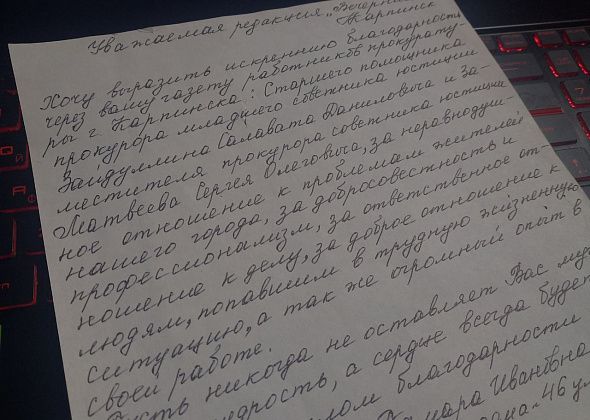 Уважаемая редакция „Вечерний
Карпинск
Хочу выразить искреннюю благодарность
через вашу газету работников прокурату-
ры г. Карпинска: Старшего помощника
прокурора младшего советника юстиции
Зайдуллина Салавата Даниловича и за-
местителя прокурора советника юстиции
Матвеева Сергея Олеговича, за неравнодуш-
ное отношение к проблемам жителей
нашего города, за добросовестность и
профессионализм, за ответственное от-
ношение к делу, за доброе отношение к
людям, попавшим в трудную жизненную
ситуацию, а так же огромный опыт в
своей работе.
Пусть никогда не оставляет Вас
а сердце всегда будет
благодарности
Ивановна
46